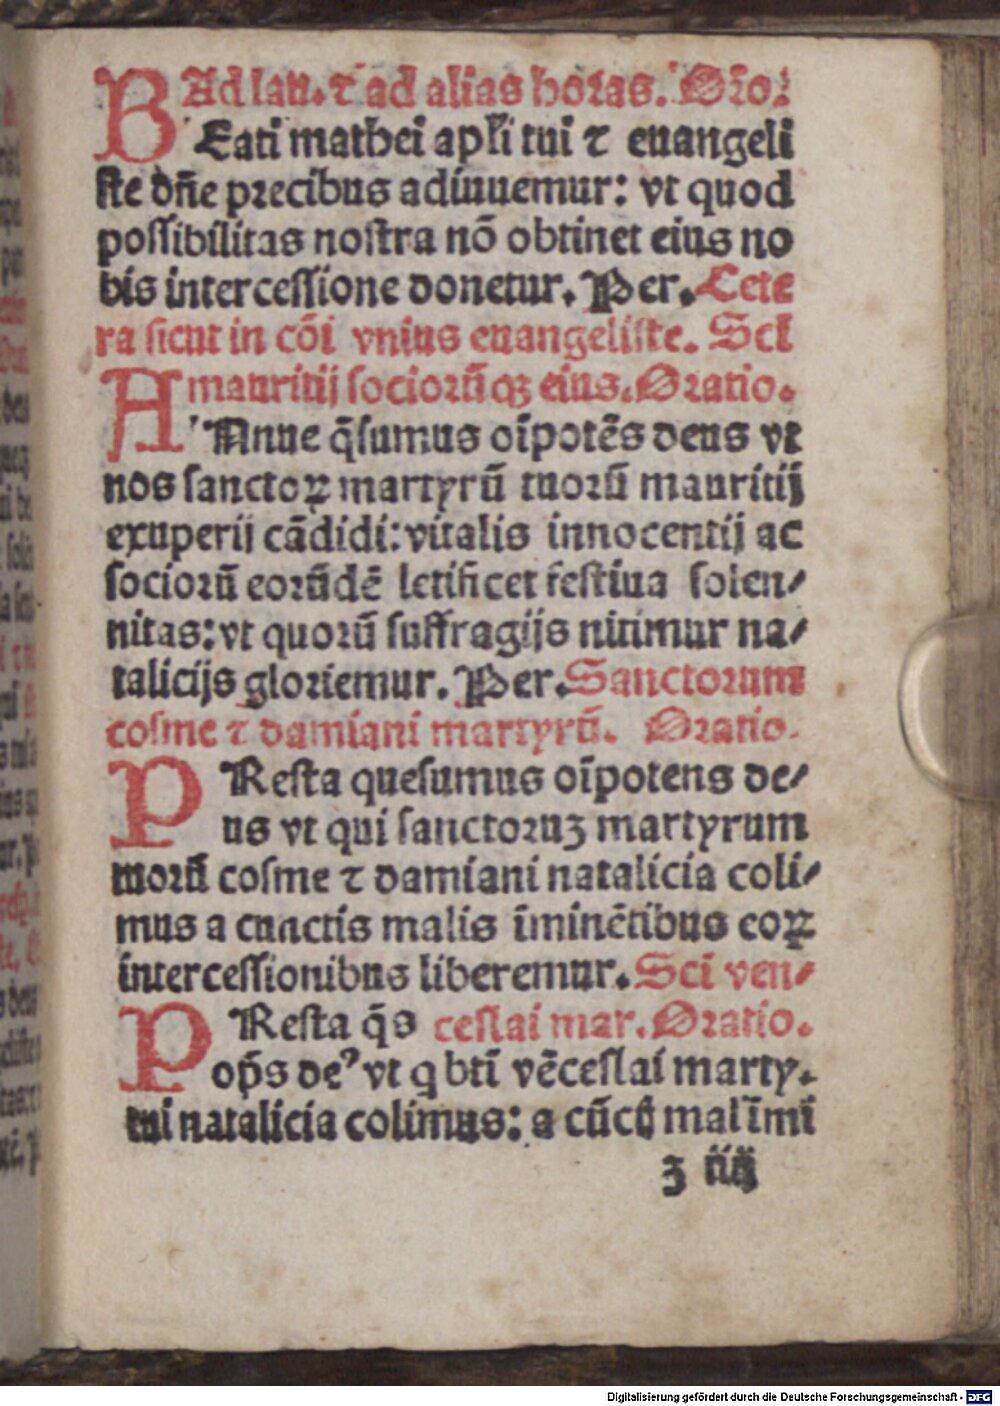 Ad lau. ⁊ ad alias horas. Oro.
BEati mathei apłi tui ⁊ euangeli
ste dñe precibus adiuuemur: vt quod
possibilitas nostra nō obtinet eius no
bis intercessione donetur. Per. Cete
ra sicut in cōi vnius euangeliste. Scī
mauritij sociorūqꝫ eius. Oratio.
ANnue q̄sumus oīpotēs deus vt
nos sanctoꝝ martyrū tuorū mauritij
exuperij cādidi: vitalis innocentij ac
sociorū eorūdē letificet festiua solen/
nitas: vt quorū suffragijs nitimur na/
talicijs gloriemur. Per. Sanctorum
cosme ⁊ damiani martyrū. Oratio.
PResta quesumus oīpotens de/
us vt qui sanctoruꝫ martyrum
tuorū cosme ⁊ damiani natalicia coli/
mus a cunctis malis īminētibus eoꝝ
intercessionibus liberemur. Scī ven/
PResta q̄s ceslai mar. Oratio.
op̄s deꝰ vt q btī vēceslai marty.
tui natalicia colimus: a cūct̄ mal īmi
ꝫ iiij
Digitalisierung gefördert durch die Deutsche Forschungsgemeinschaft - DFG